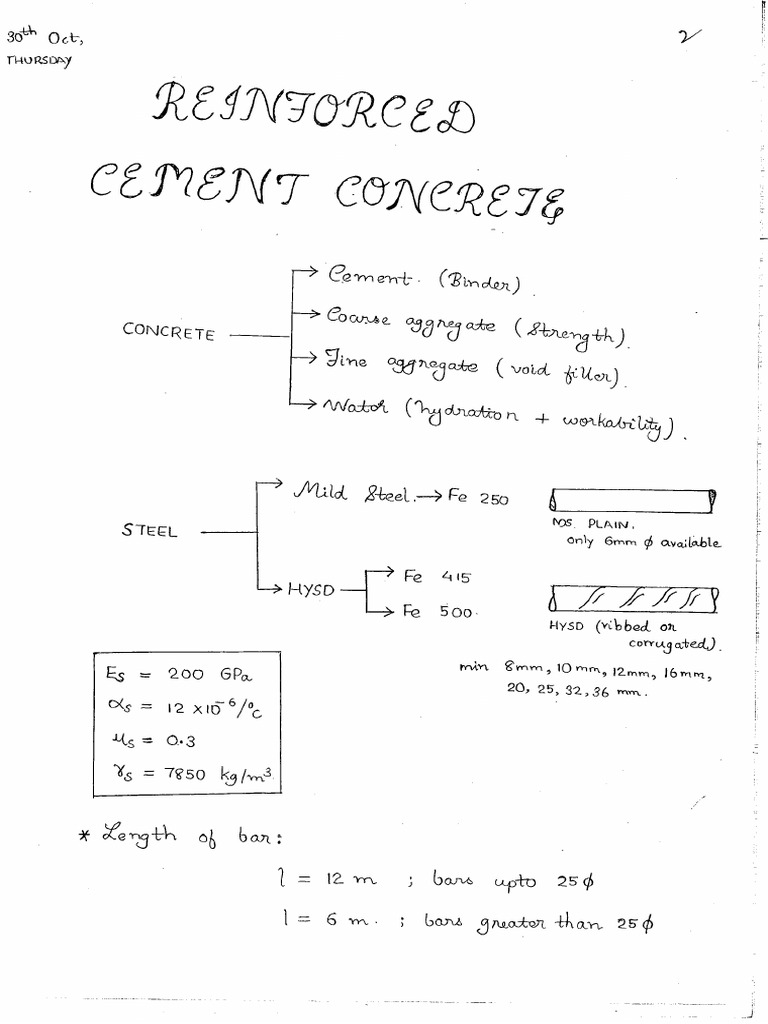 30th Oct,
THURSDAY
2
REINFORCED
CEMENT CONCRETE
CONCRETE
Cement. (Binder).
Coarse aggregate (Strength).
Fine aggregate (void filler).
Water (hydration + workability).
STEEL
Mild Steel. → Fe 250
MS. PLAIN.
only 6mm ϕ available
HYSD
Fe 415
Fe 500.
HYSD (ribbed or
corrugated).
min 8mm, 10mm, 12mm, 16mm,
20, 25, 32, 36 mm.
Es = 200 GPa
αs = 12 x10⁻⁶/°C
μs = 0.3
γs = 7850 kg/m³
* Length of bar:
l = 12 m ; bars upto 25ϕ
l = 6 m. ; bars greater than 25ϕ